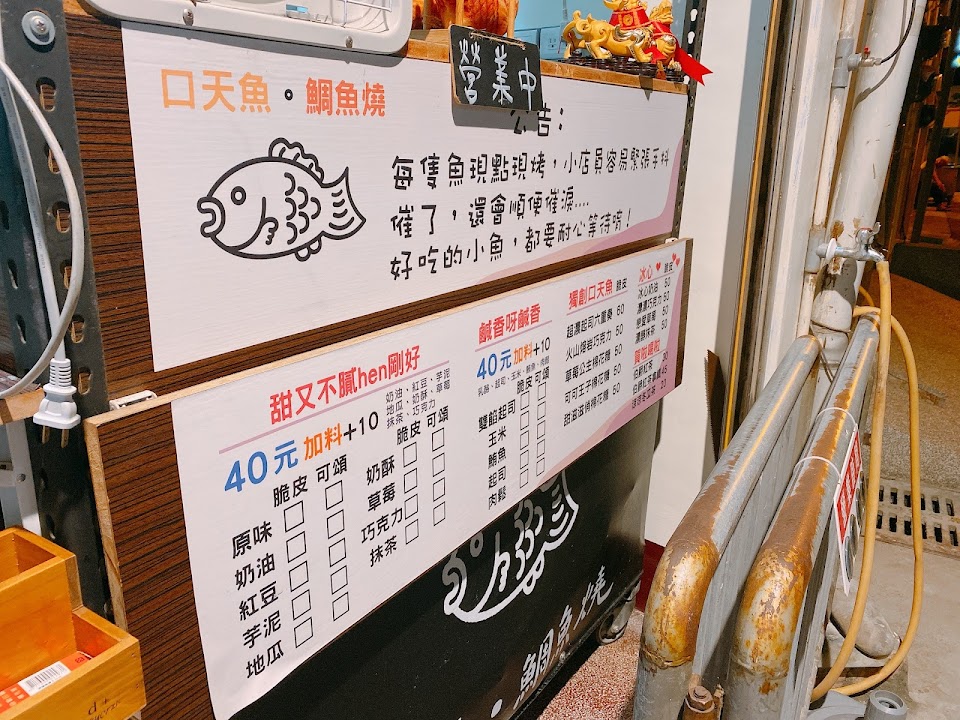 口天魚·鯛魚燒
營業中
公告：
每隻魚現點現烤，小店員容易緊張手抖
催了，還會順便催淚....
好吃的小魚，都要耐心等待唷！
甜又不膩hen剛好
40元 加料+10
奶油、紅豆、芋泥
地瓜、奶酥、草莓
抹茶、巧克力
脆皮 可頌
原味
奶油
紅豆
芋泥
地瓜
脆皮 可頌
奶酥
草莓
巧克力
抹茶
鹹香呀鹹香
40元 加料+10
脆皮 可頌
雙餡起司
玉米
鮪魚
起司
肉鬆
獨創口天魚 脆皮
超濃起司六重奏 60
火山熔岩巧克力 50
草莓公主棉花糖 50
可可王子棉花糖 50
冰心 脆皮
冰心奶油 50
濃濃巧克力 50
戀愛草莓 50
濃韻抹茶 50
伯爵紅茶
鯛魚燒